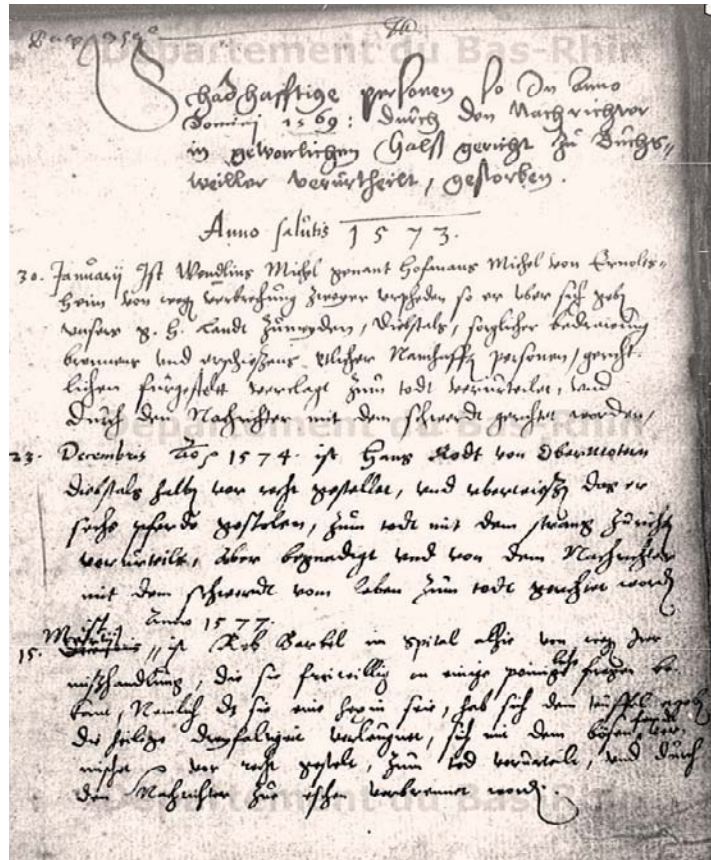 Schadhafftige personen so In Anno
Domini 1569: durch den Nachrichter
in gewonlichen Halß gericht zu Buchs„
weiller verurtheilt, gestorben.
Anno salutis 1573.
30. Januarij Ist Wendlins Michel genant Hofmans Michel von Ernolts„
heim von weg verbrechung zweyer urpheden so er uber sich geb
unsers g. h. Landt zu meyden, Diebstals, sorglicher bedrawung
brennens und erschießens etlicher Namhaffter personen, gericht
lichen furgestelt verclagt zum todt verurteilet, und
durch den Nachrichter mit dem schwerdt gerichtet worden,
23. Decembris Ao 1574. ist Hans Rodt von Obermotern
Diebstals halb vor recht gestellet, und uberwiesen das er
sechs pferde gestolen, zum todt mit dem strang zurichten
verurteilt, Aber begnadigt und von dem Nachrichter
mit dem schwerdt vom leben zum todt gerichtet word
Anno 1577.
15. Martij ist Barbel im spital alhie von weg Irer
mißhandlung, die sie freiwillig on einige peinige fragen be
kant, Nemlich dz sie eine hexin seie, hab sich dem teuffel ergeb
die heilige dreyfaltigkeit verleugnet, sich mit dem bösen feindt ver
mischet vor recht gestelt, zum tod verurteilt, und durch
den Nachrichter zue eschen verbrennet word.
Département du Bas-Rhin
Département du Bas-Rhin
Département du Bas-Rhin